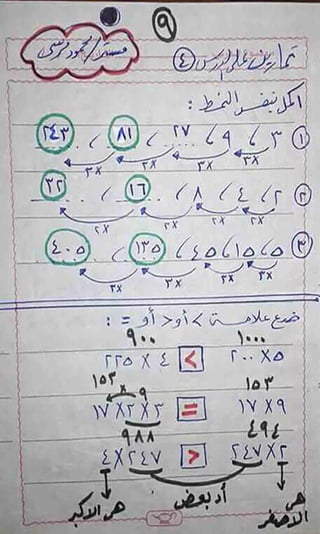 ٩
مستر/محمود مرسى
تمارين على الدرس ٤
اكمل بنفس النمط :
١ ٣ ، ٩ ، ٢٧ ، ٨١ ، ٢٤٣
٣× ٣× ٣× ٣×
٢ ٢ ، ٤ ، ٨ ، ١٦ ، ٣٢
٢× ٢× ٢× ٢×
٣ ٥ ، ١٥ ، ٤٥ ، ١٣٥ ، ٤٠٥
٣× ٣× ٣× ٣×
ضع علامة > أو < أو = :
١٠٠٠ ٩٠٠
٥ × ٢٠٠ > ٤ × ٢٢٥
١٥٣ ٩ × ١٥٣
٩ × ١٧ = ٣ × ٢ × ١٧
٤٩٤ ٩٨٨
٢ × ٢٤٧ < ٢٤٧ × ٤
هى الاصغر أد بعض هى الاكبر